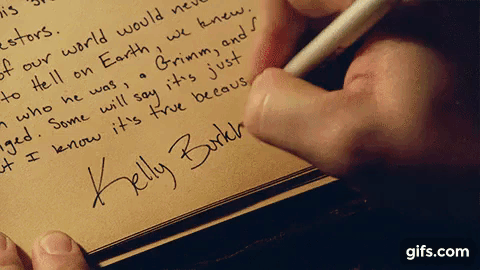 his
estors.
of our world would neve
to Hell on Earth, we knew.
who he was, a Grimm, and
ged. Some will say it's just
I know it's true becaus
Kelly Burkh
gifs.com